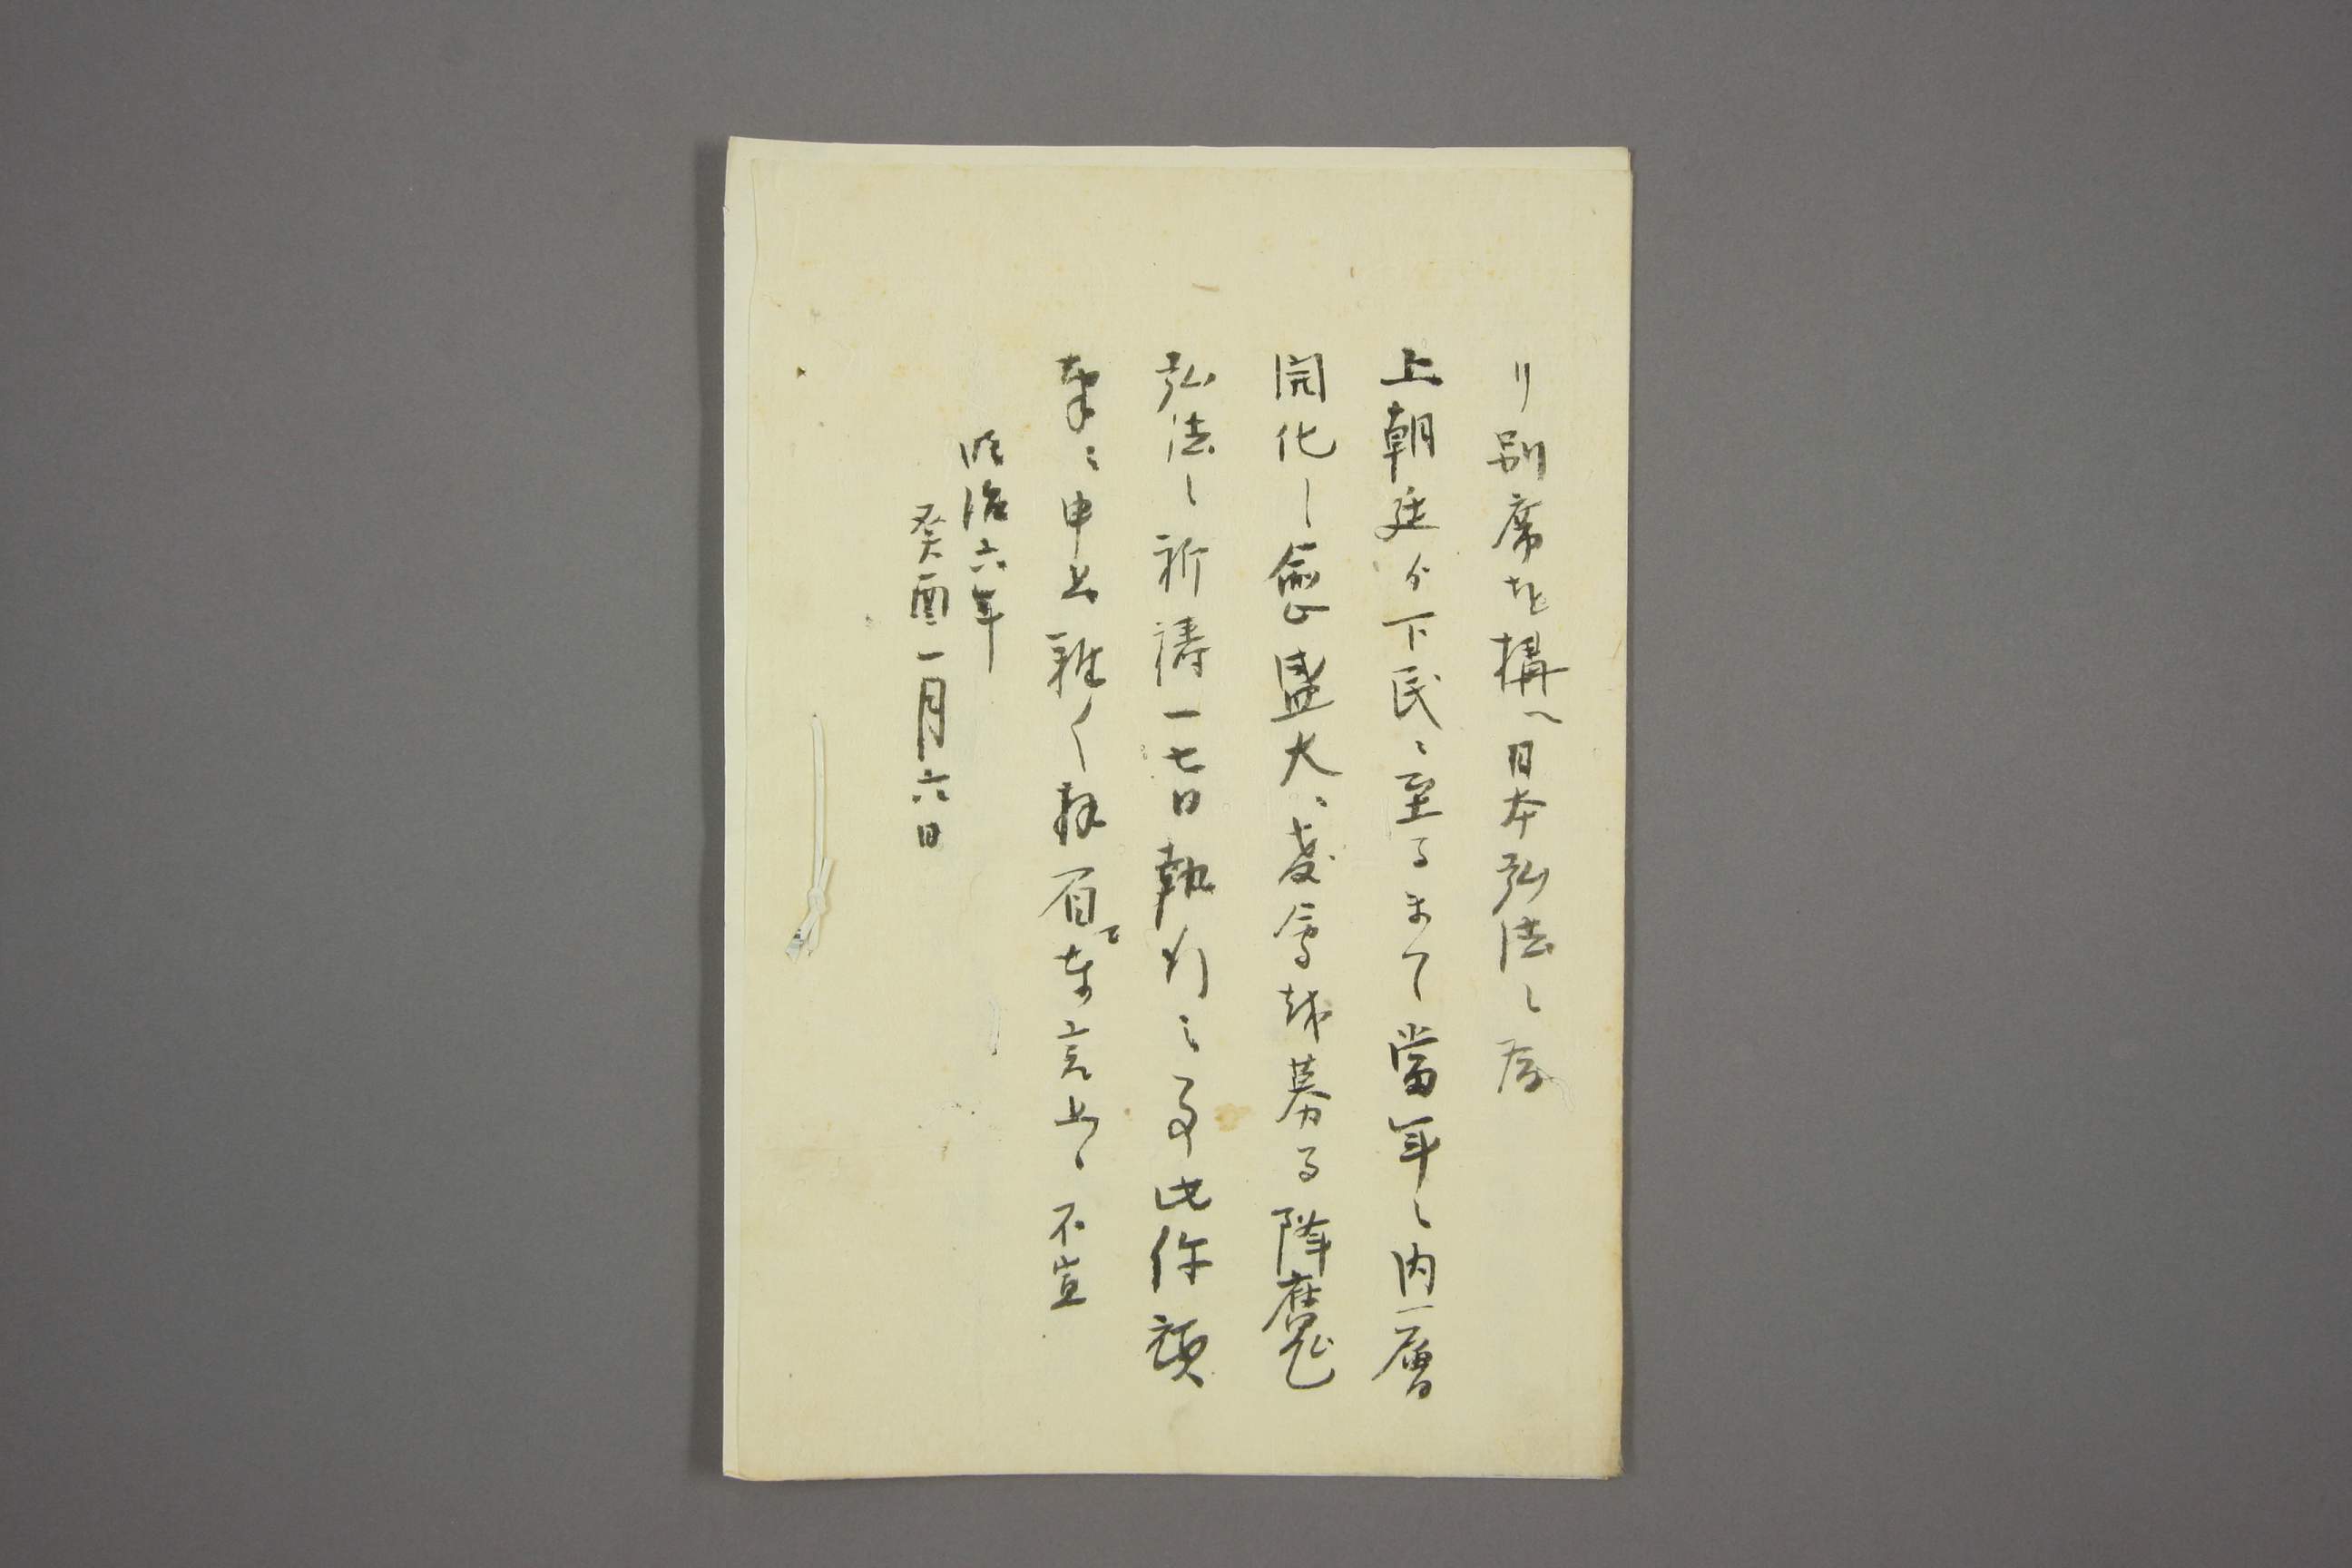 リ別席を構へ日本弘法之為
上朝廷ゟ下民ニ至るまて當年之内一層
開化し愈盛大ニ
募る降魔
弘法之祈禱一七日執行之事此件
ニ申上難く拝眉て 言上 不宣
明治六年
癸酉一月六日